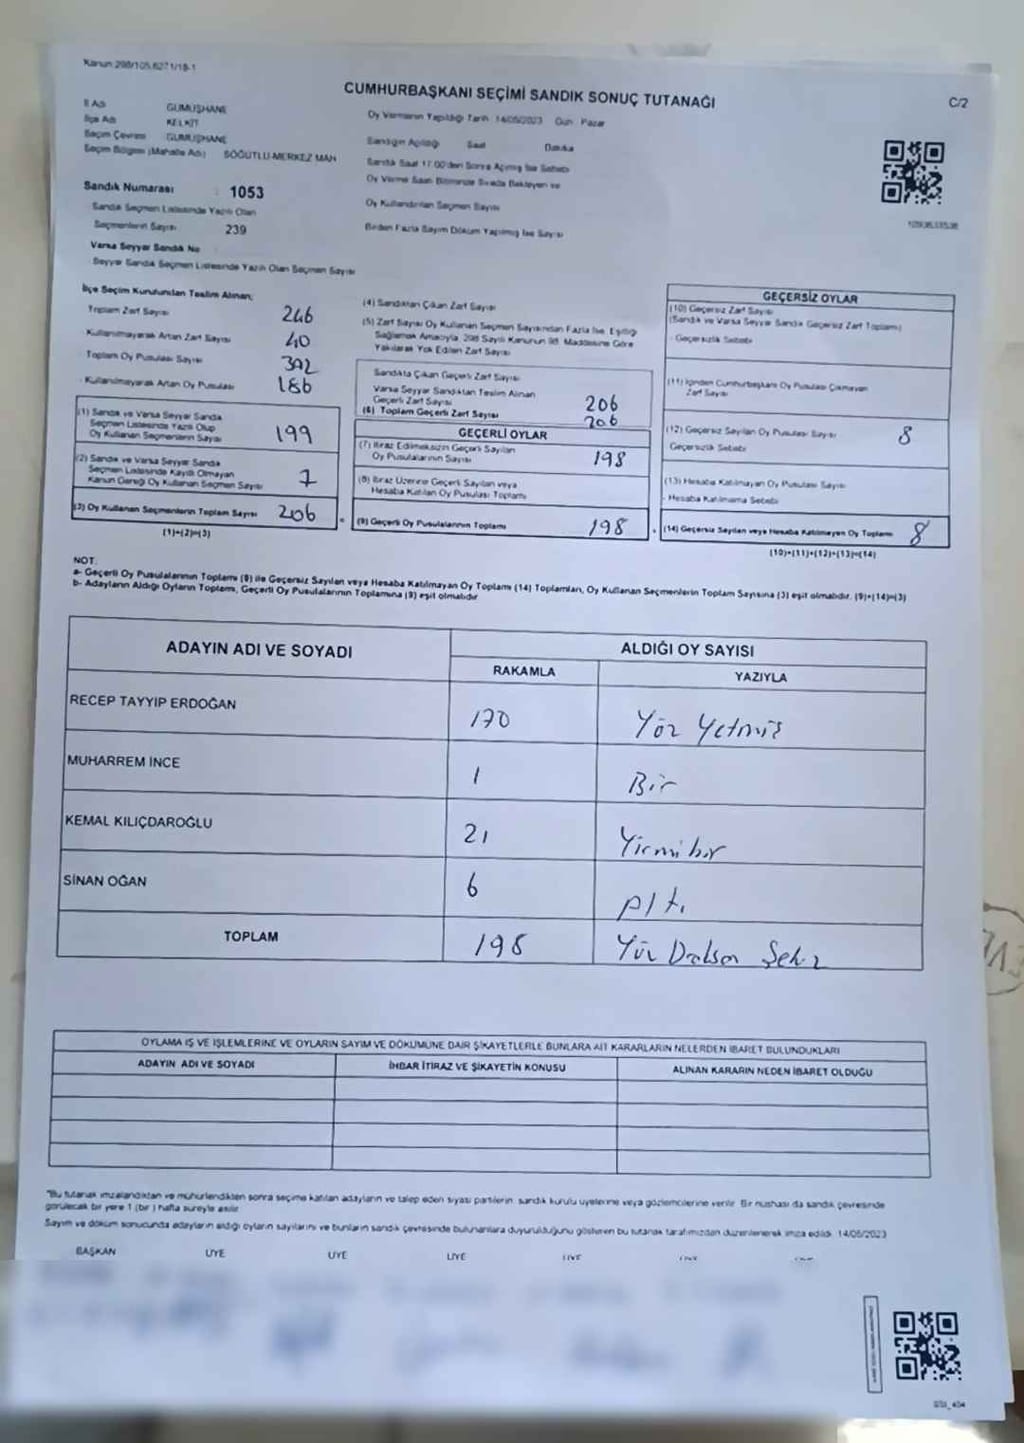 Kanun:298/105,6271/18-1
CUMHURBAŞKANI SEÇİMİ SANDIK SONUÇ TUTANAĞI
C/2
İl Adı GÜMÜŞHANE
İlçe Adı KELKİT
Seçim Çevresi GÜMÜŞHANE
Seçim Bölgesi (Mahalle Adı) SÖĞÜTLÜ-MERKEZ MAH
Sandık Numarası : 1053
Sandık Seçmen Listesinde Yazılı Olan
Seçmenlerin Sayısı 239
Varsa Seyyar Sandık No
Seyyar Sandık Seçmen Listesinde Yazılı Olan Seçmen Sayısı
Oy Vermenin Yapıldığı Tarih: 14/05/2023 Gün: Pazar
Sandığın Açıldığı Saat Dakika
Sandık Saat 17.00'den Sonra Açılmış İse Sebebi
Oy Verme Saati Bitiminde Sırada Bekleyen ve
Oy Kullandırılan Seçmen Sayısı
Birden Fazla Sayım Döküm Yapılmış İse Sayısı
İlçe Seçim Kurulundan Teslim Alınan;
Toplam Zarf Sayısı 246
Kullanılmayarak Artan Zarf Sayısı 40
Toplam Oy Pusulası Sayısı 392
Kullanılmayarak Artan Oy Pusulası 186
(1) Sandık ve Varsa Seyyar Sandık
Seçmen Listesinde Yazılı Olup
Oy Kullanan Seçmenlerin Sayısı 199
(2) Sandık ve Varsa Seyyar Sandık
Seçmen Listesinde Kayıtlı Olmayan
Kanun Gereği Oy Kullanan Seçmen Sayısı 7
(3) Oy Kullanan Seçmenlerin Toplam Sayısı 206
(1)+(2)=(3)
(4) Sandıktan Çıkan Zarf Sayısı
(5) Zarf Sayısı Oy Kullanan Seçmen Sayısından Fazla İse, Eşitliği
Sağlamak Amacıyla, 298 Sayılı Kanunun 98. Maddesine Göre
Yakılarak Yok Edilen Zarf Sayısı
Sandıkta Çıkan Geçerli Zarf Sayısı
Varsa Seyyar Sandıktan Teslim Alınan
Geçerli Zarf Sayısı 206
(6) Toplam Geçerli Zarf Sayısı 206
GEÇERLİ OYLAR
(7) İtiraz Edilmeksizin Geçerli Sayılan
Oy Pusulalarının Sayısı 198
(8) İtiraz Üzerine Geçerli Sayılan veya
Hesaba Katılan Oy Pusulası Toplamı
(9) Geçerli Oy Pusulalarının Toplamı 198
GEÇERSİZ OYLAR
(10) Geçersiz Zarf Sayısı
(Sandık ve Varsa Seyyar Sandık Geçersiz Zarf Toplamı)
- Geçersizlik Sebebi
(11) İçinden Cumhurbaşkanı Oy Pusulası Çıkmayan
Zarf Sayısı
(12) Geçersiz Sayılan Oy Pusulası Sayısı 8
Geçersizlik Sebebi
(13) Hesaba Katılmayan Oy Pusulası Sayısı
- Hesaba Katılmama Sebebi
(14) Geçersiz Sayılan veya Hesaba Katılmayan Oy Toplamı 8
(10)+(11)+(12)+(13)=(14)
NOT:
a- Geçerli Oy Pusulalarının Toplamı (9) ile Geçersiz Sayılan veya Hesaba Katılmayan Oy Toplamı (14) Toplamları, Oy Kullanan Seçmenlerin Toplam Sayısına (3) eşit olmalıdır. (9)+(14)=(3)
b- Adayların Aldığı Oyların Toplamı, Geçerli Oy Pusulalarının Toplamına (9) eşit olmalıdır
ADAYIN ADI VE SOYADI ALDIĞI OY SAYISI
RAKAMLA YAZIYLA
RECEP TAYYIP ERDOĞAN 170 Yüz Yetmiş
MUHARREM İNCE 1 Bir
KEMAL KILIÇDAROĞLU 21 Yirmi bir
SİNAN OĞAN 6 Altı
TOPLAM 198 Yüz Doksan Sekiz
OYLAMA İŞ VE İŞLEMLERİNE VE OYLARIN SAYIM VE DÖKÜMÜNE DAİR ŞİKAYETLERLE BUNLARA AİT KARARLARIN NELERDEN İBARET BULUNDUKLARI
ADAYIN ADI VE SOYADI İHBAR İTİRAZ VE ŞİKAYETİN KONUSU ALINAN KARARIN NEDEN İBARET OLDUĞU
"Bu tutanak imzalandıktan ve mühürlendikten sonra seçime katılan adayların ve talep eden siyasi partilerin, sandık kurulu üyelerine veya gözlemcilerine verilir. Bir nüshası da sandık çevresinde
görülecek bir yere 1 (bir) hafta süreyle asılır.
Sayım ve döküm sonucunda adayların aldığı oyların sayılarını ve bunların sandık çevresinde bulunanlara duyurulduğunu gösteren bu tutanak tarafımızdan düzenlenerek imza edildi. 14/05/2023
BAŞKAN ÜYE ÜYE ÜYE ÜYE